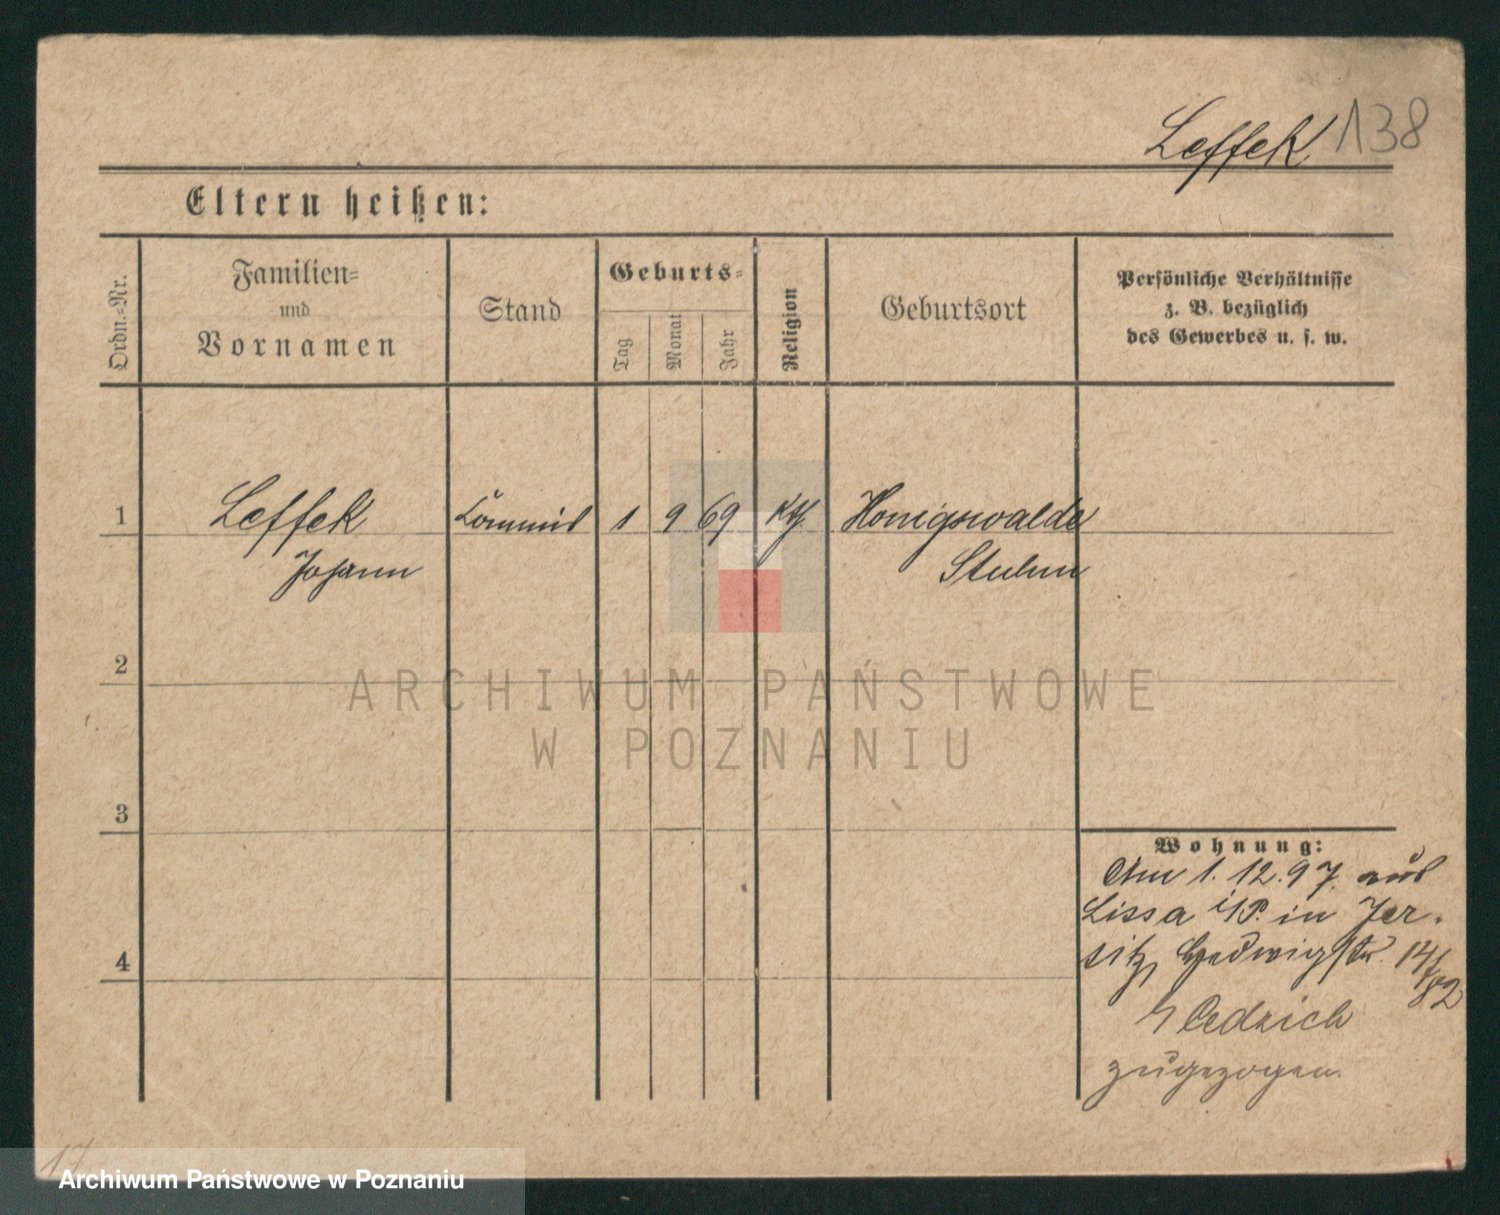 Leffek 138
Eltern heißen:
Ordn.=Nr.
Familien=
und
Vornamen
Stand
Geburts=
Tag
Monat
Jahr
Religion
Geburtsort
Persönliche Verhältnisse
z. B. bezüglich
des Gewerbes u. s. w.
1 Leffek 1 9 69 kth. Honigswalde
Johann Stuhm
2
ARCHIWUM PAŃSTWOWE
W POZNANIU
3
Wohnung:
Am 1. 12. 97. aus
Lissa i/P. in Jer-
sitz, Hedwigstr. 14/
Cedzich
zugezogen.
4
17
Archiwum Państwowe w Poznaniu